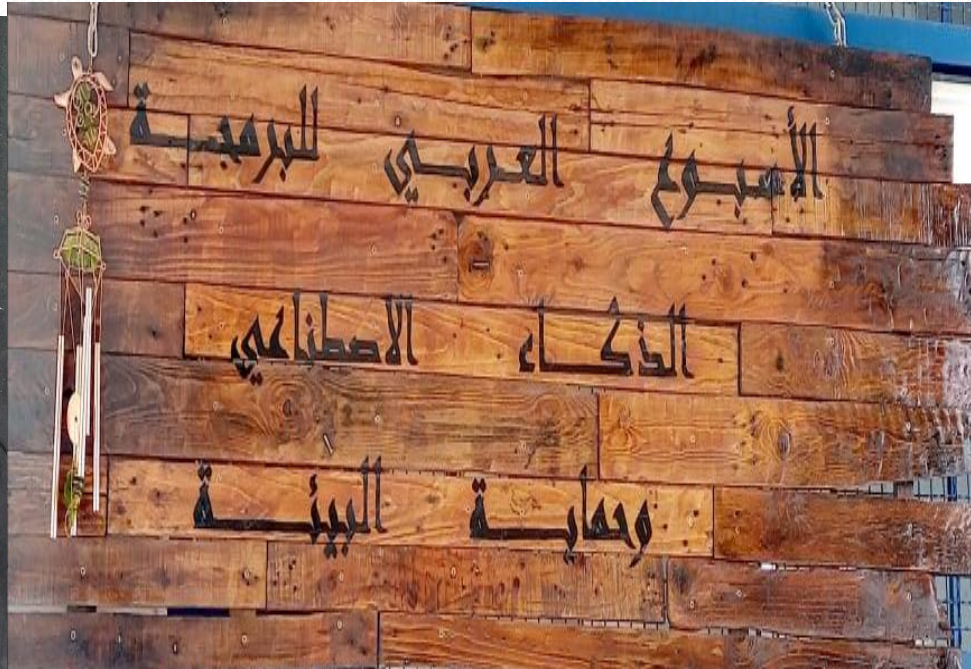 الأسبوع العربي للبرمجة
الذكاء الاصطناعي
وحماية البيئة